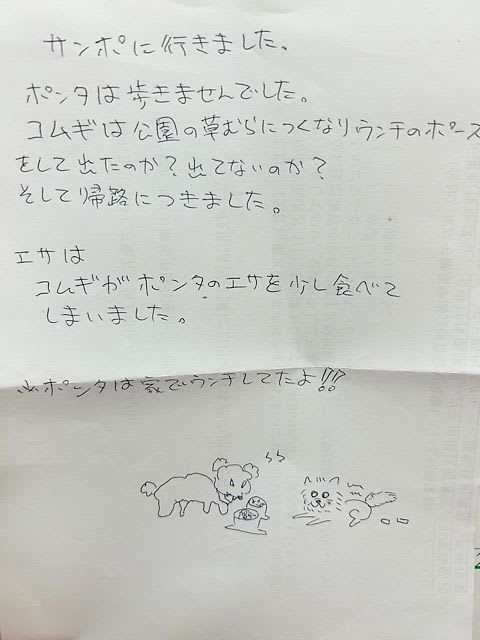 サンポに行きました。
ポンタは歩きませんでした。
コムギは公園の草むらにつくなりウンチのポーズ
をして出たのか?出てないのか?
そして帰路につきました。
エサは
コムギがポンタのエサを少し食べて
しまいました。
ポンタは家でウンチしてたよ!!